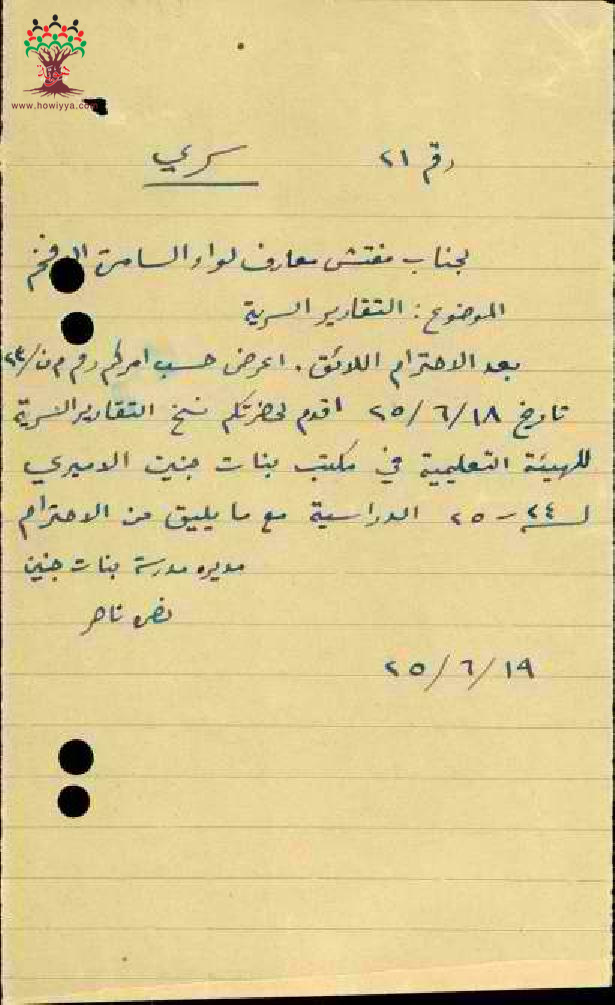 www.howiyya.com
رقم ٢١ سري
لجناب مفتش معارف لواء السامرة المفخم
الموضوع : التقارير السرية
بعد الاحترام اللائق . اعرض حسب امركم رقم م ن/٢٤
تاريخ ٢٥/٦/١٨ اقدم لحضرتكم نسخ التقارير السرية
للهيئة التعليمية في مكتب بنات جنين الاميري
لـ ٢٤ - ٢٥ الدراسية مع ما يليق من الاحترام
مديره مدرسة بنات جنين
٢٥/٦/١٩